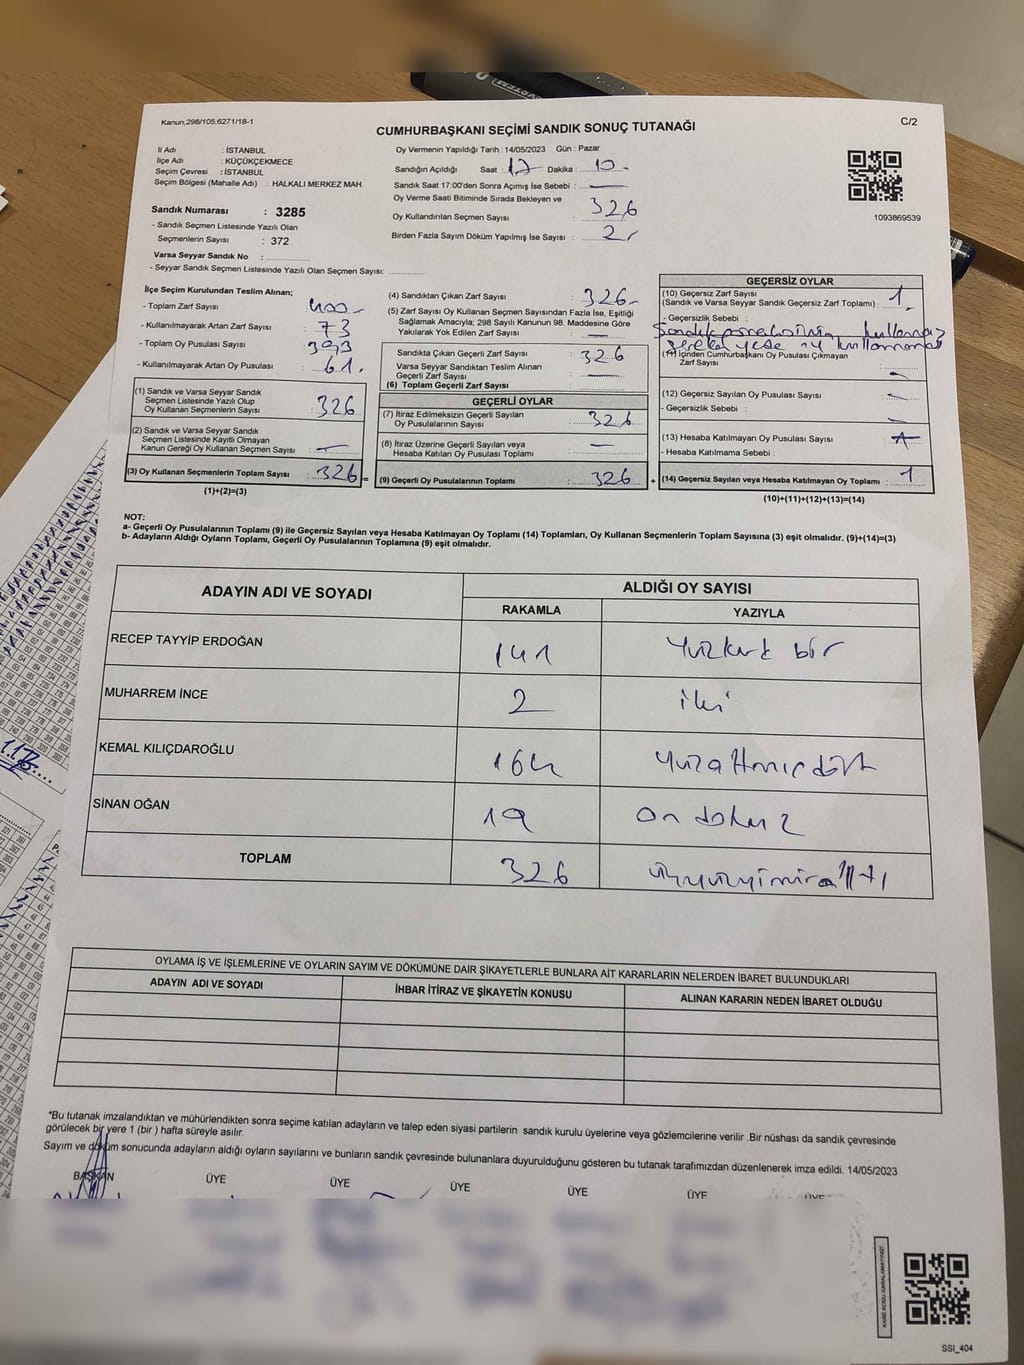 Kanun;298/105;6271/18-1
C/2
CUMHURBAŞKANI SEÇİMİ SANDIK SONUÇ TUTANAĞI
İl Adı : İSTANBUL
İlçe Adı : KÜÇÜKÇEKMECE
Seçim Çevresi : İSTANBUL
Seçim Bölgesi (Mahalle Adı) : HALKALI MERKEZ MAH.
Sandık Numarası : 3285
- Sandık Seçmen Listesinde Yazılı Olan
Seçmenlerin Sayısı : 372
Varsa Seyyar Sandık No :
- Seyyar Sandık Seçmen Listesinde Yazılı Olan Seçmen Sayısı:
Oy Vermenin Yapıldığı Tarih : 14/05/2023 Gün : Pazar
Sandığın Açıldığı Saat : 17 Dakika : 10
Sandık Saat 17:00'den Sonra Açımış İse Sebebi :
Oy Verme Saati Bitiminde Sırada Bekleyen ve
Oy Kullandırılan Seçmen Sayısı : 326
Birden Fazla Sayım Döküm Yapılmış İse Sayısı : 2
1093869539
İlçe Seçim Kurulundan Teslim Alınan;
- Toplam Zarf Sayısı : 400
- Kullanılmayarak Artan Zarf Sayısı : 73
- Toplam Oy Pusulası Sayısı : 393
- Kullanılmayarak Artan Oy Pusulası : 61
(1) Sandık ve Varsa Seyyar Sandık
Seçmen Listesinde Yazılı Olup
Oy Kullanan Seçmenlerin Sayısı : 326
(2) Sandık ve Varsa Seyyar Sandık
Seçmen Listesinde Kayıtlı Olmayan
Kanun Gereği Oy Kullanan Seçmen Sayısı :
(3) Oy Kullanan Seçmenlerin Toplam Sayısı : 326 =
(1)+(2)=(3)
(4) Sandıktan Çıkan Zarf Sayısı : 326
(5) Zarf Sayısı Oy Kullanan Seçmen Sayısından Fazla İse, Eşitliği
Sağlamak Amacıyla; 298 Sayılı Kanunun 98. Maddesine Göre
Yakılarak Yok Edilen Zarf Sayısı :
Sandıkta Çıkan Geçerli Zarf Sayısı : 326
Varsa Seyyar Sandıktan Teslim Alınan
Geçerli Zarf Sayısı :
(6) Toplam Geçerli Zarf Sayısı :
GEÇERLİ OYLAR
(7) İtiraz Edilmeksizin Geçerli Sayılan
Oy Pusulalarının Sayısı : 326
(8) İtiraz Üzerine Geçerli Sayılan veya
Hesaba Katılan Oy Pusulası Toplamı :
(9) Geçerli Oy Pusulalarının Toplamı : 326 +
GEÇERSİZ OYLAR
(10) Geçersiz Zarf Sayısı
(Sandık ve Varsa Seyyar Sandık Geçersiz Zarf Toplamı) : 1
- Geçersizlik Sebebi :
Sandık kullanmaz
yese oy kullanmamış
(11) İçinden Cumhurbaşkanı Oy Pusulası Çıkmayan
Zarf Sayısı :
(12) Geçersiz Sayılan Oy Pusulası Sayısı :
- Geçersizlik Sebebi :
(13) Hesaba Katılmayan Oy Pusulası Sayısı :
- Hesaba Katılmama Sebebi :
(14) Geçersiz Sayılan veya Hesaba Katılmayan Oy Toplamı : 1
(10)+(11)+(12)+(13)=(14)
NOT:
a- Geçerli Oy Pusulalarının Toplamı (9) ile Geçersiz Sayılan veya Hesaba Katılmayan Oy Toplamı (14) Toplamları, Oy Kullanan Seçmenlerin Toplam Sayısına (3) eşit olmalıdır. (9)+(14)=(3)
b- Adayların Aldığı Oyların Toplamı, Geçerli Oy Pusulalarının Toplamına (9) eşit olmalıdır.
ADAYIN ADI VE SOYADI ALDIĞI OY SAYISI
RAKAMLA YAZIYLA
RECEP TAYYİP ERDOĞAN 141 Yüzkırk bir
MUHARREM İNCE 2 iki
KEMAL KILIÇDAROĞLU 164 Yüzaltmışdört
SİNAN OĞAN 19 on dokuz
TOPLAM 326 üçyüzyirmialtı
OYLAMA İŞ VE İŞLEMLERİNE VE OYLARIN SAYIM VE DÖKÜMÜNE DAİR ŞİKAYETLERLE BUNLARA AİT KARARLARIN NELERDEN İBARET BULUNDUKLARI
ADAYIN ADI VE SOYADI İHBAR İTİRAZ VE ŞİKAYETİN KONUSU ALINAN KARARIN NEDEN İBARET OLDUĞU
*Bu tutanak imzalandıktan ve mühürlendikten sonra seçime katılan adayların ve talep eden siyasi partilerin sandık kurulu üyelerine veya gözlemcilerine verilir .Bir nüshası da sandık çevresinde
görülecek bir yere 1 (bir ) hafta süreyle asılır.
Sayım ve döküm sonucunda adayların aldığı oyların sayılarını ve bunların sandık çevresinde bulunanlara duyurulduğunu gösteren bu tutanak tarafımızdan düzenlenerek imza edildi. 14/05/2023
BAŞKAN ÜYE ÜYE ÜYE ÜYE ÜYE ÜYE
KARE KODU KARALAMAYINIZ!
SSI_404